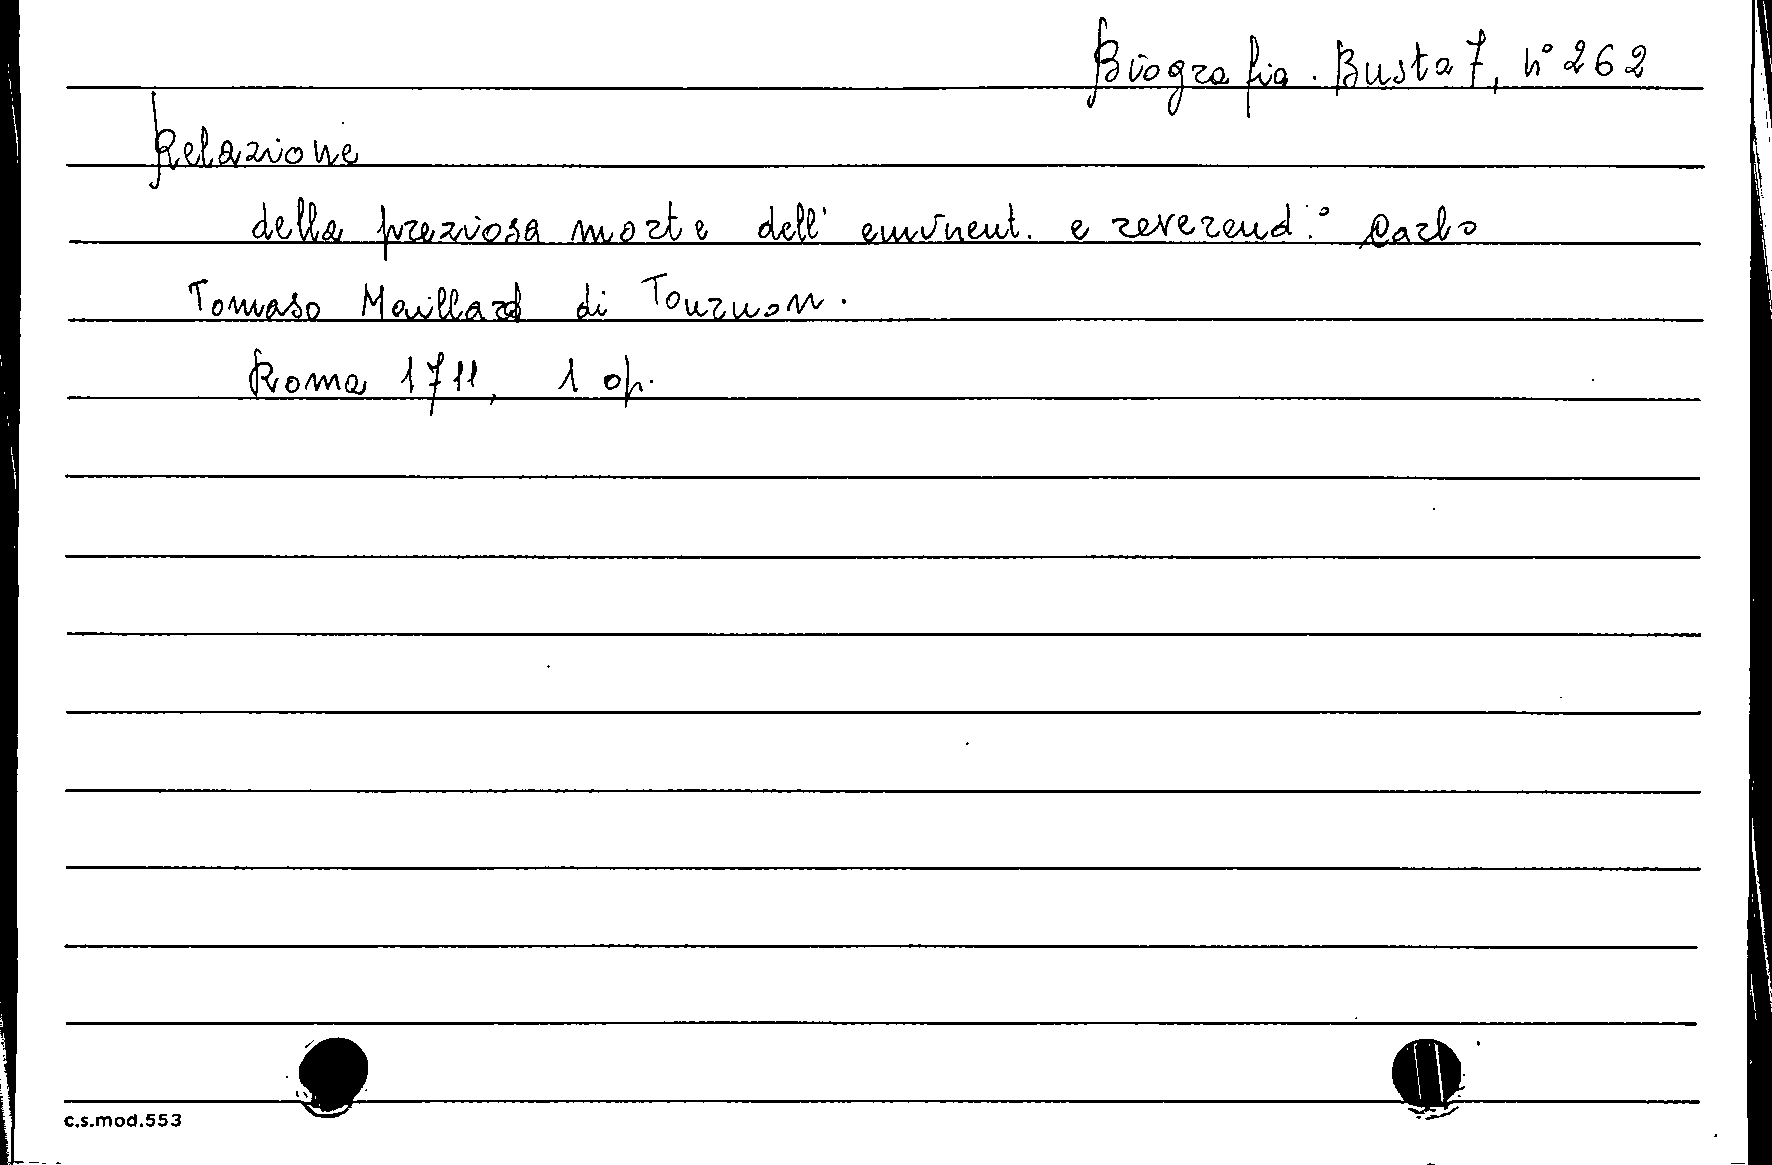 Biografia. Busta 7, n° 262
Relazione
della preziosa morte dell' eminent. e reverend.° Carlo
Tomaso Maillard di Tournon.
Roma 1711, 1 op.
c.s.mod.553